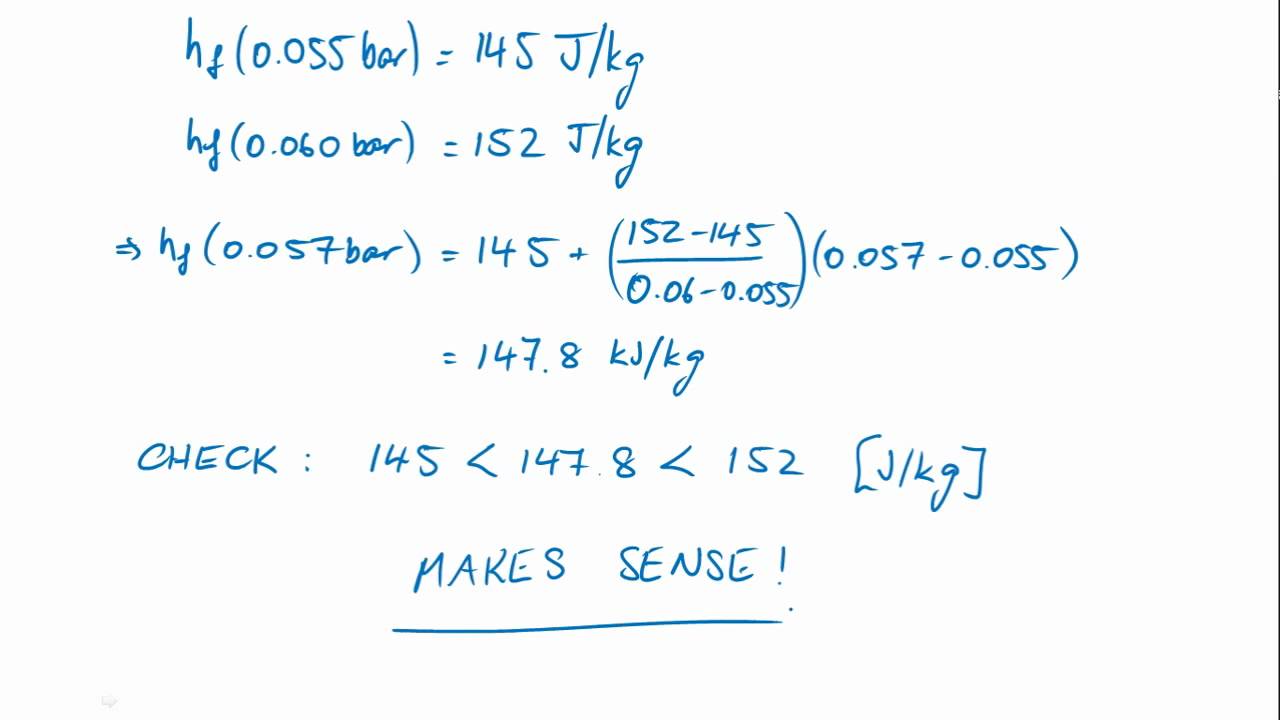 hf (0.055 bar) = 145 J/kg
hf (0.060 bar) = 152 J/kg
⇒ hf (0.057 bar) = 145 + ((152 - 145)/(0.06 - 0.055)) (0.057 - 0.055)
= 147.8 kJ/kg
CHECK : 145 < 147.8 < 152 [J/kg]
MAKES SENSE !